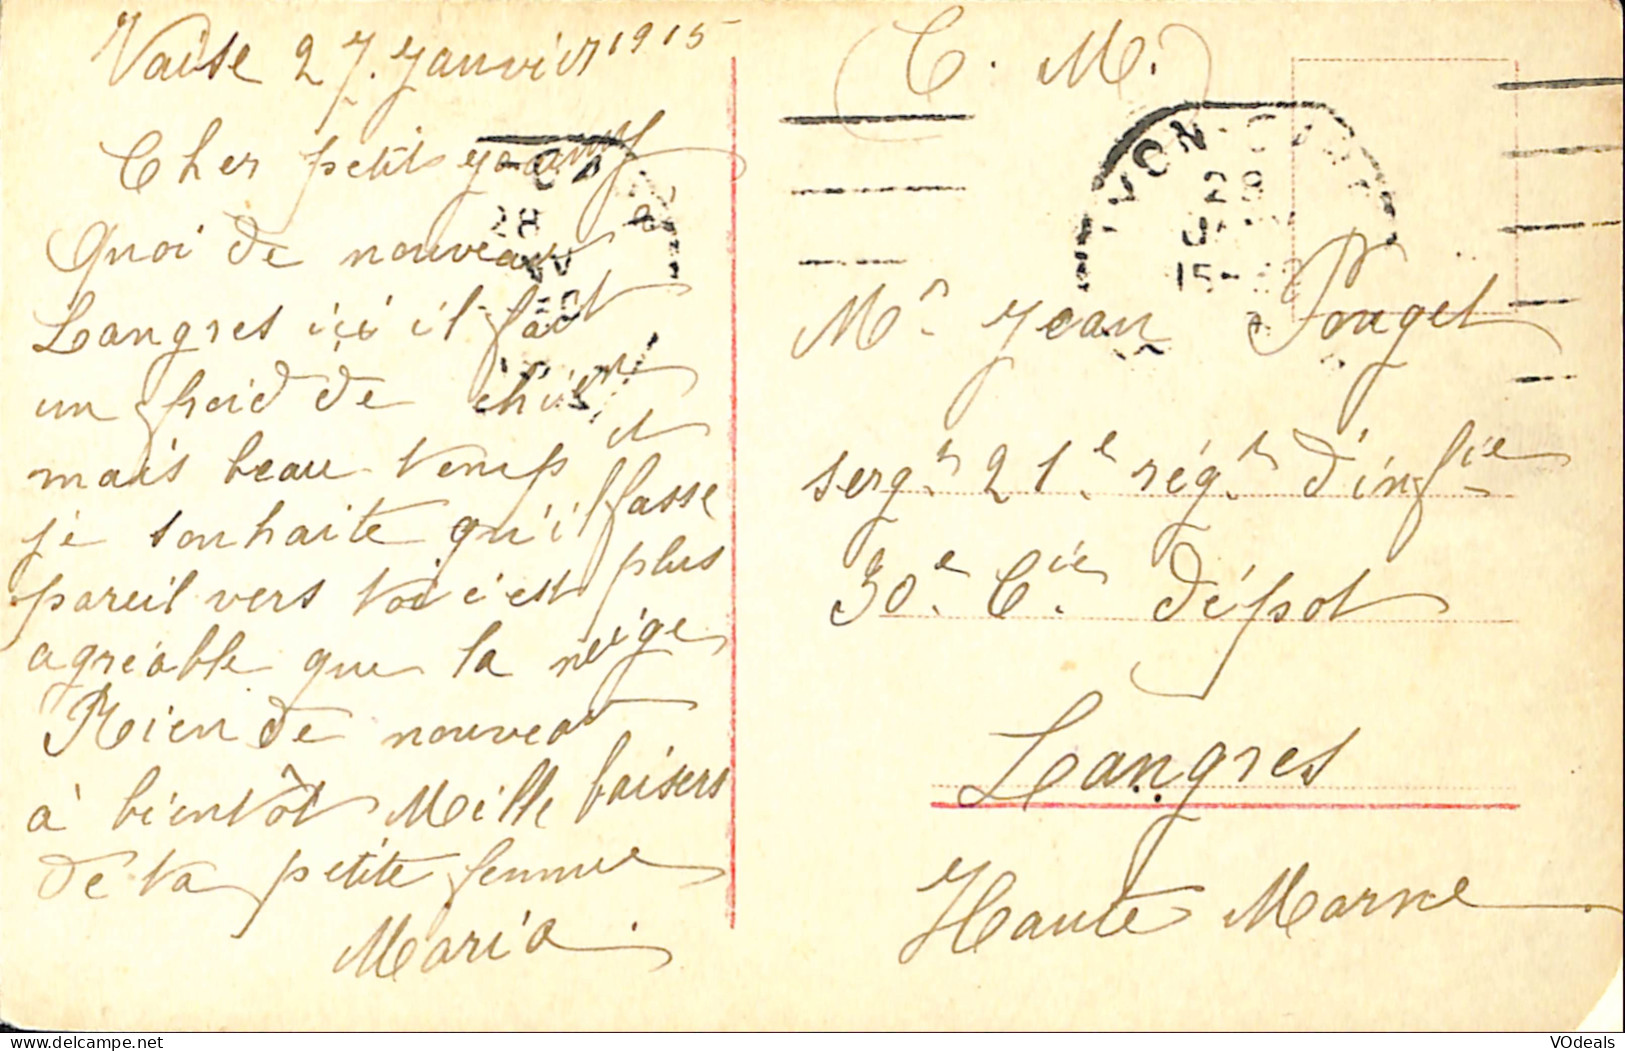 Vaise 27. Janvier 1915
Cher petit
Quoi de nouveau
Langres ici il fait
un froid de chien
mais beau temps et
je souhaite qu'il fasse
pareil vers toi c'est plus
agréable que la neige
Rien de nouveau
à bientôt Mille baisers
de ta petite femme
Maria.
C. M.
LYON-GARE
28
15
Mr. Jean Pouget
sergt. 21e. régt. d'infie
30e. Cie. dépot
Langres
Haute Marne
VOdeals